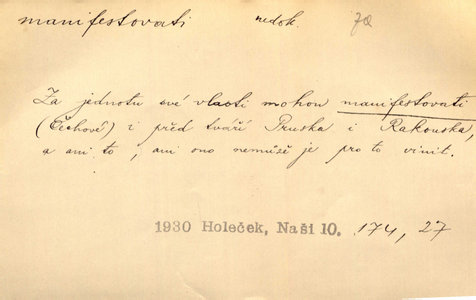 manifestovati nedok. ja
Za jednotu své vlasti mohou manifestovati
(Čechové) i před tváří Pruska i Rakouska,
a ani to, ani ono nemůže je pro to vinit.
1930 Holeček, Naši 10. 174, 27